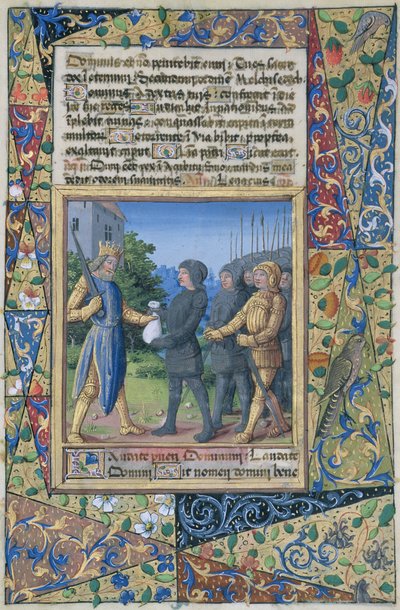 Dominus et no penitebit eum: Tu es sacer
dos in eternum: secundum ordinem Melchisedech
Dominus a dextris tuis: confregit in die
ire sue reges Iudicabit in nationibus
implebit ruinas: conquassabit capita in terra
multorum De torrente in via bibit: propterea
exaltavit caput Gloria patri Sicut erat
Dum esset rex in
dedit odorem suavitatis
Laudate pueri Dominum: Laudate
Domini Sit nomen domini bene